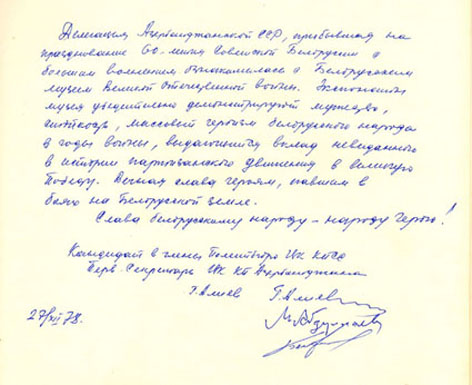 Делегация Азербайджанской ССР, прибывшая на
празднование 60-летия Советской Белоруссии с
большим волнением ознакомилась с Белорусским
музеем Великой Отечественной войны. Экспонаты
музея убедительно демонстрируют мужество,
стойкость, массовый героизм белорусского народа
в годы войны, выдающийся вклад невиданного
в истории партизанского движения в великую
Победу. Вечная слава героям, павшим в
боях на Белорусской земле.
Слава белорусскому народу – народу герою!
Кандидат в члены Политбюро ЦК КПСС
Перв. Секретарь ЦК КП Азербайджана
Г. Алиев Г. Алиев
27/XII 78.